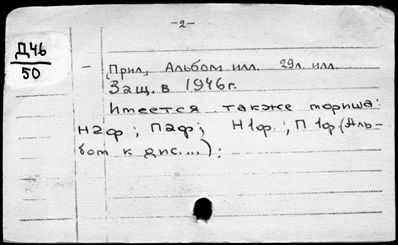 -2-
Д46
50
- Прил. Альбом илл. 29л. илл.
Защ. в 1946г.
Имеется также
Н2ф ; П2ф ; Н1ф. ; П1ф (Аль-
бом к дис....) ;